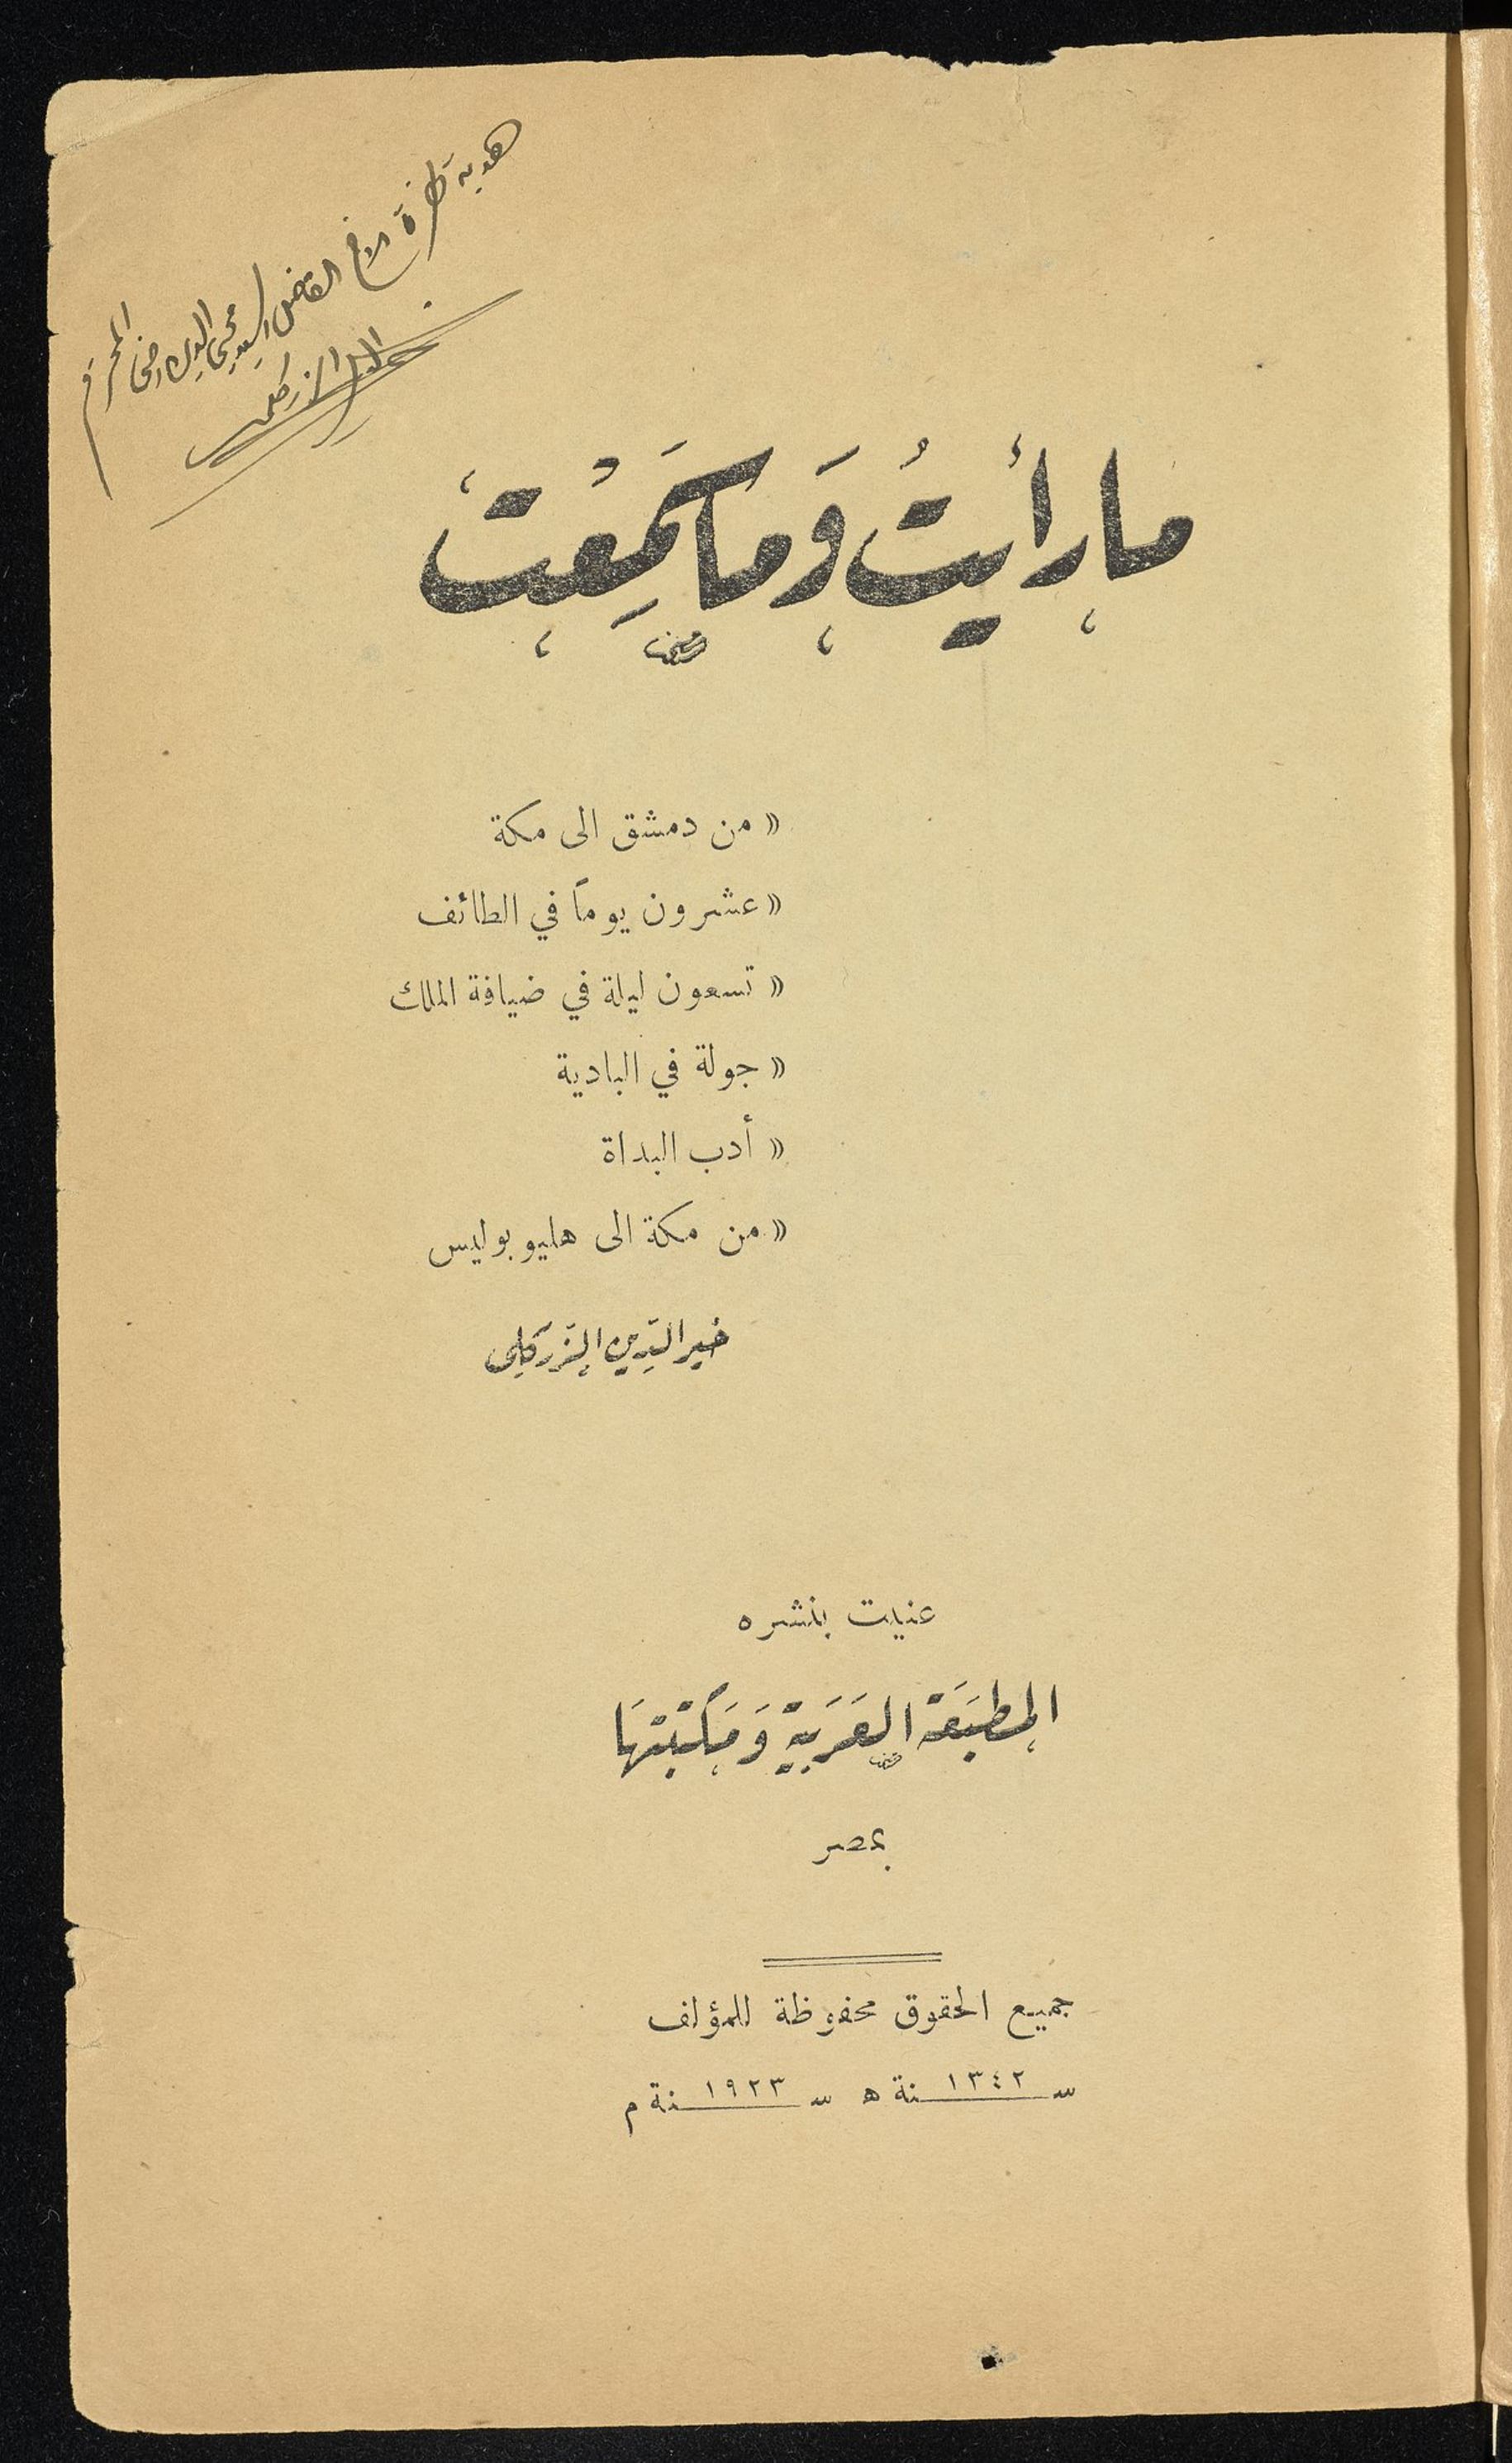 هدية لحضرة الاخ الفاضل السيد محيي الدين رضى المحترم
خير الدين الزركلي
ما رأيتُ وَما سَمِعْت
« من دمشق الى مكة
« عشرون يوماً في الطائف
« تسعون ليلة في ضيافة الملك
« جولة في البادية
« أدب البداة
« من مكة الى هليوبوليس
خير الدين الزركلي
عنيت بنشره
المطبَعَة العَرَبية وَمَكتبتهَا
بمصر
جميع الحقوق محفوظة للمؤلف
سنة ١٣٤٢ ه سنة ١٩٢٣ م